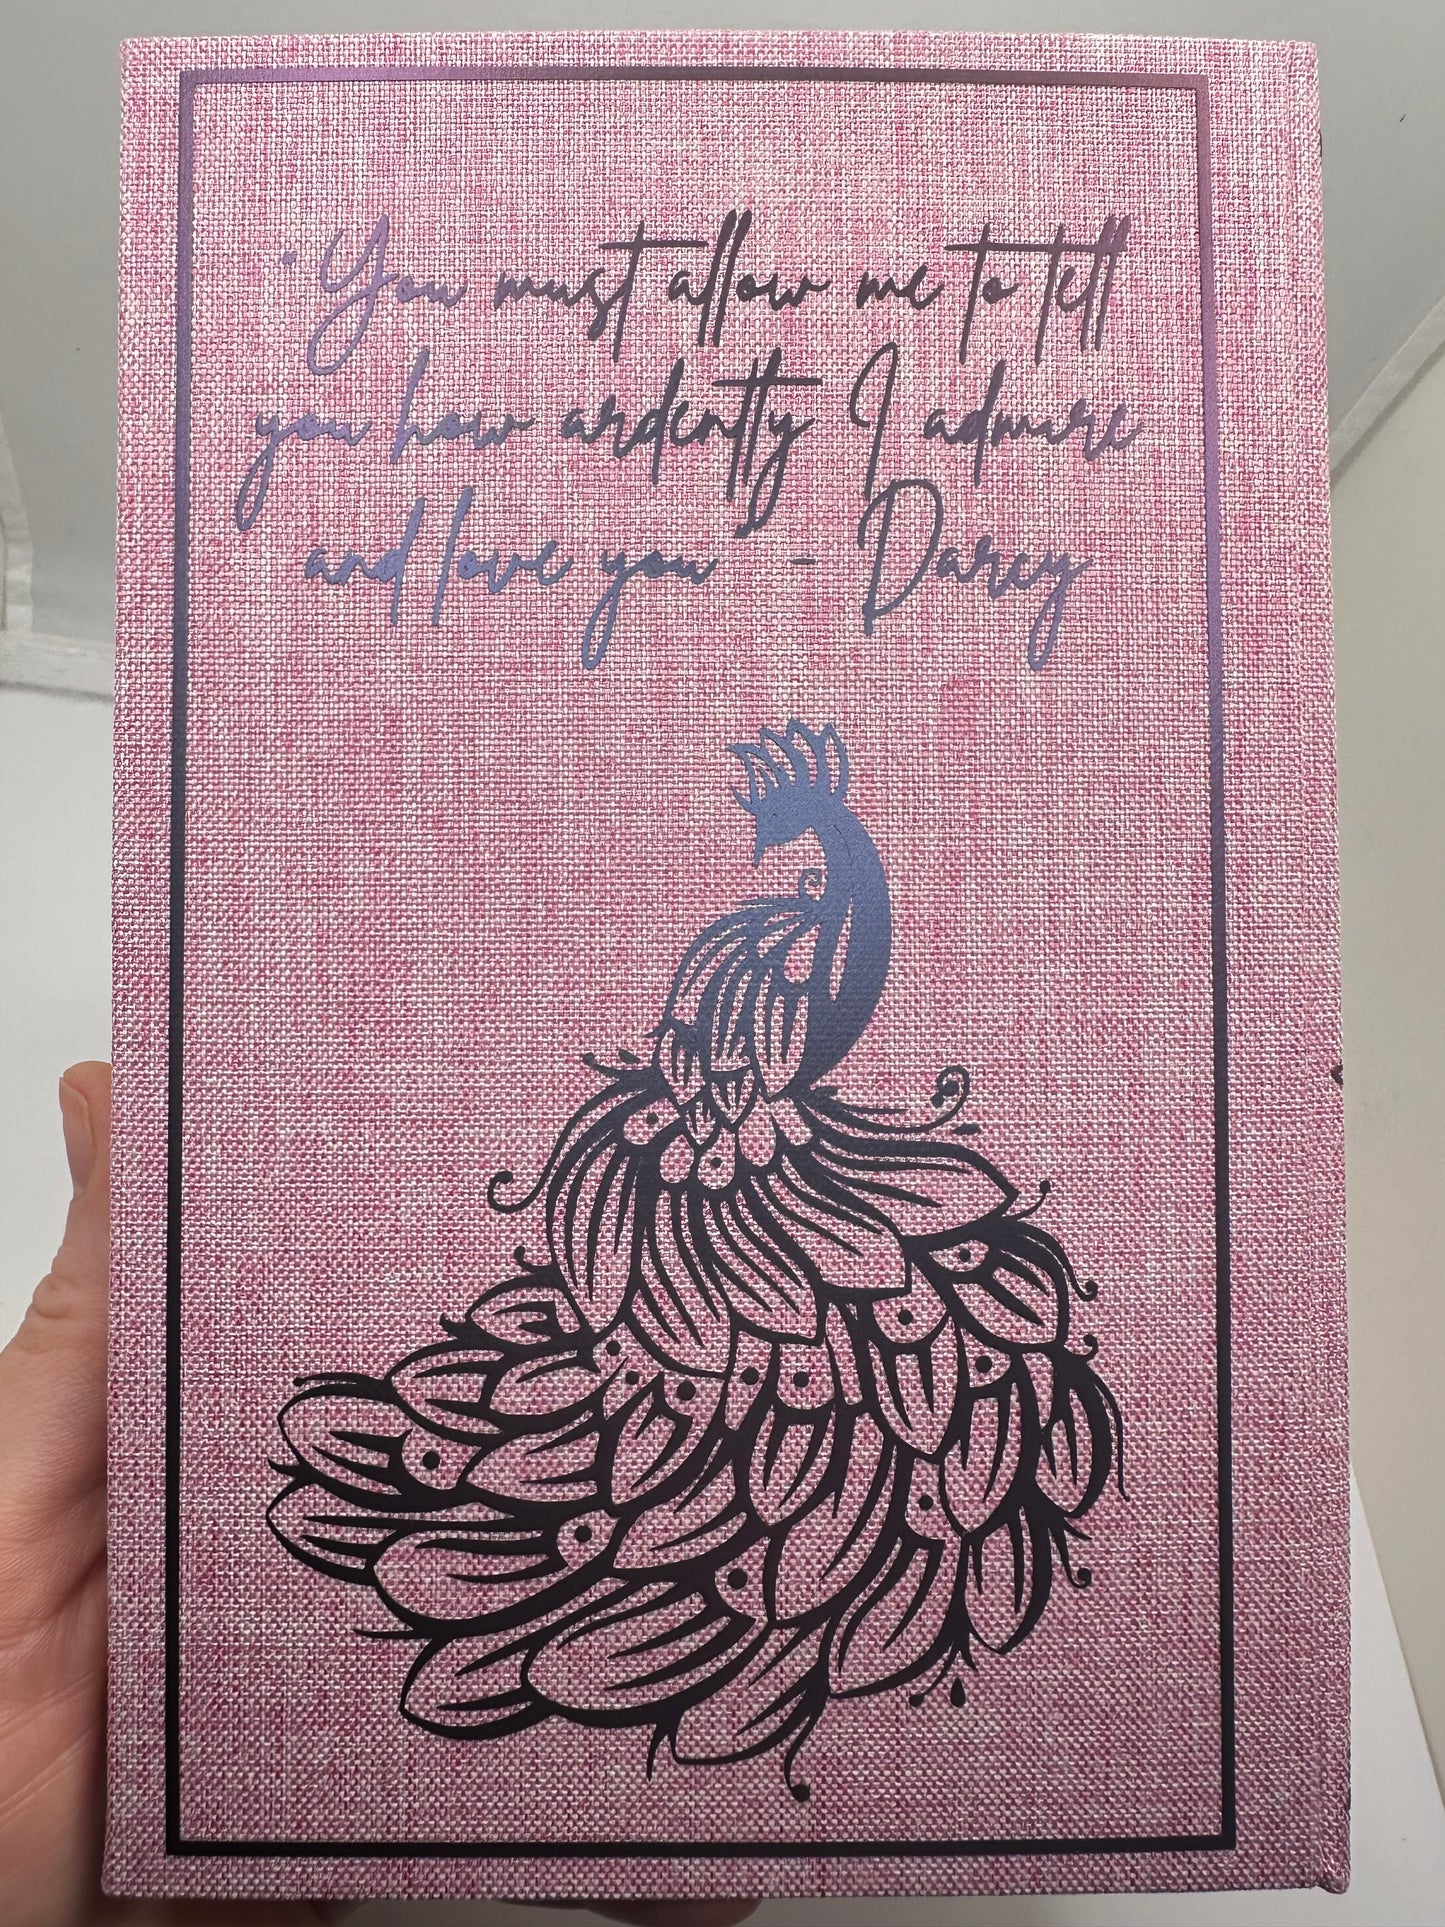 "You must allow me to tell
you how ardently I admire
and love you" - Darcy